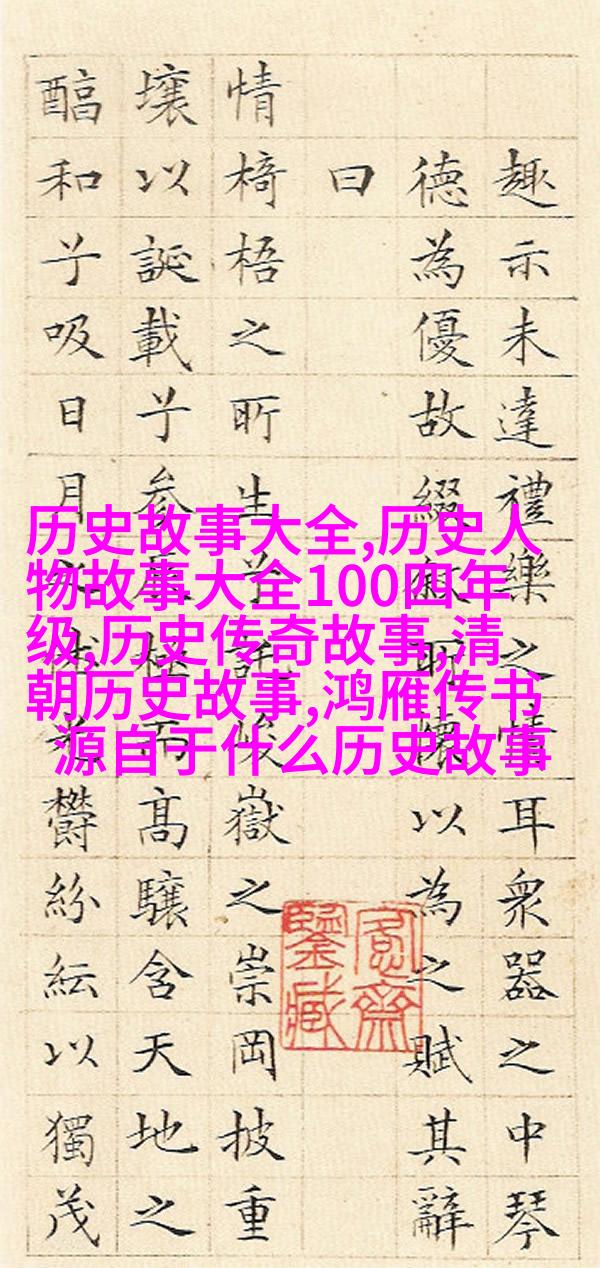 历史故事大全,历史人
物故事大全100四年
级,历史传奇故事,清
朝历史故事,鸿雁传书
源自于什么历史故事
趣示未達禮樂之情耳衆器之中琴
德為優故綴叙所懷以為之賦其辭
曰
情椅梧之所生兮託峻嶽之崇岡披重
壤以誕載兮参辰極而高驤含天地之
醕和兮吸日月鬱紛紜以獨茂
愙齋
鑒藏